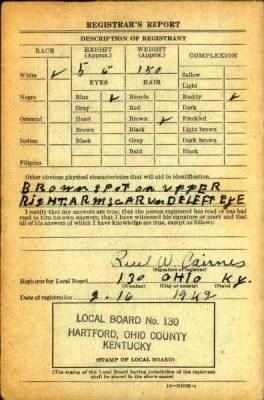 REGISTRAR'S REPORT
DESCRIPTION OF REGISTRANT
RACE HEIGHT (Approx.) WEIGHT (Approx.) COMPLEXION
White ✓ 5 6" 150 Sallow
EYES HAIR Light
Negro Blue ✓ Blonde Ruddy ✓
Gray Red Dark
Oriental Hazel Brown ✓ Freckled
Brown Black Light brown
Indian Black Gray Dark brown
Bald Black
Filipino
Other obvious physical characteristics that will aid in identification
BROWN SPOT ON UPPER
RIGHT ARM SCAR UNDE LEFT EYE
I certify that my answers are true; that the person registered has read or has had
read to him his own answers; that I have witnessed his signature or mark and that
all of his answers of which I have knowledge are true, except as follows:
W. Cairnes
(Signature of registrar)
Registrar for Local Board 130 OHIO KY.
(Number) (City or county) (State)
Date of registration 2-16 1942
LOCAL BOARD No. 130
HARTFORD, OHIO COUNTY
KENTUCKY
(STAMP OF LOCAL BOARD)
(The stamp of the Local Board having jurisdiction of the registrant
shall be placed in the above space)